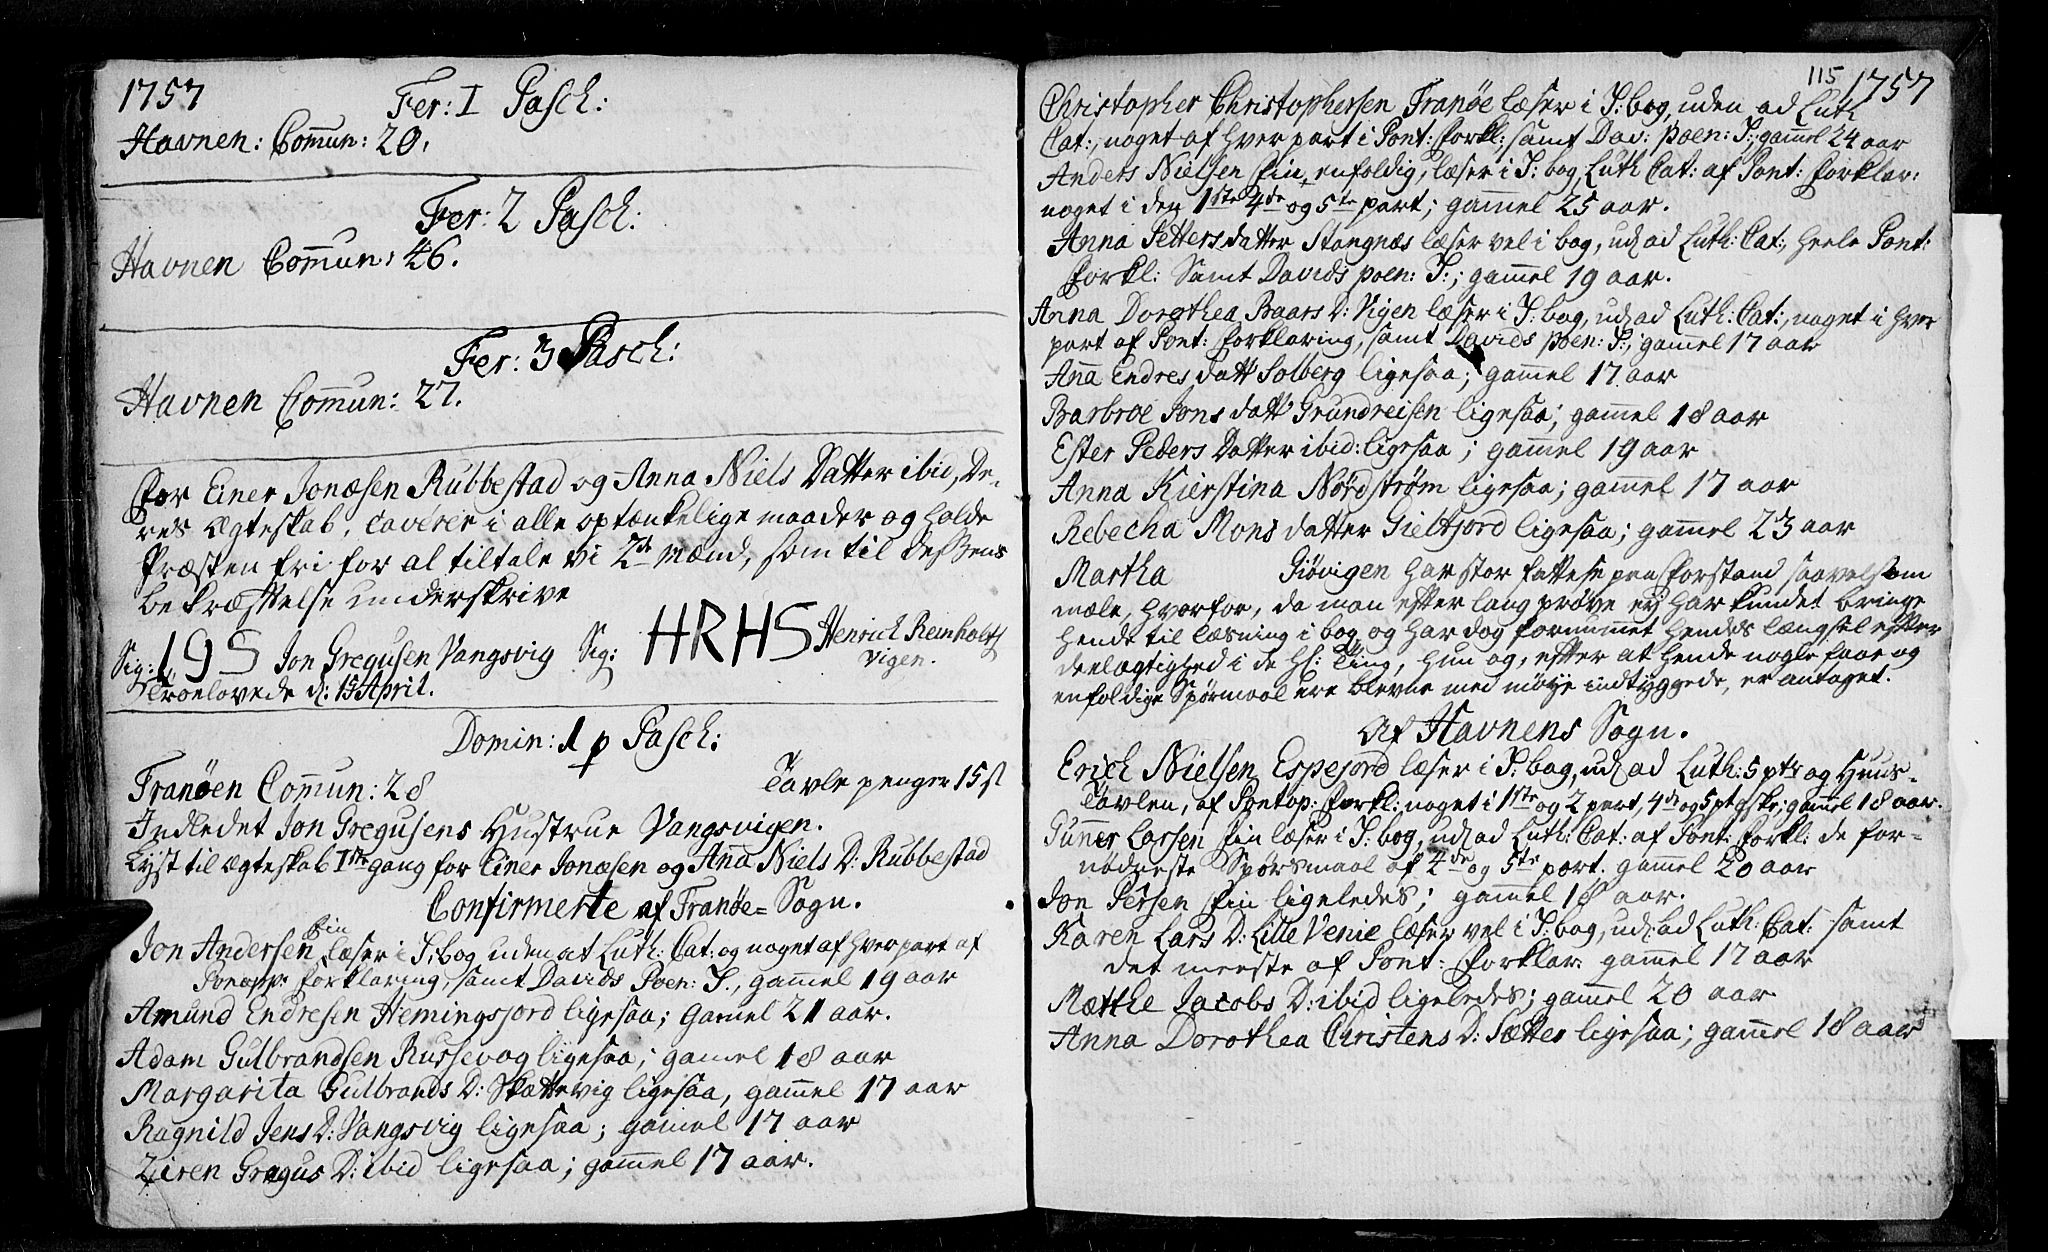 1757
Fer: I Pasch:
Havnen: Com̄un: 20.
Fer: 2 Pasch:
Havnen Com̄un: 46.
Fer: 3 Pasch:
Havnen Com̄un: 27.
For Einer Jonæsen Rubbestad og Anna Niels Datter ibid, De-
res Ægteskab, caverer i alle optænkelige maader og holde
Præsten fri for al tiltale vi 2de Mænd, som til dessens
bekræfftelse underskrive
Sig: I G S Jon Gregusen Vangsvig Sig: HRHS Henrich Reinholts
Vigen.
Troelovede d: 15 April.
Domin: 1 p Pasch:
Tavle penger 15 s
Tranøen Com̄un: 28
Indledet Jon Gregusens Hustrue Vangsvigen.
Lyst til Ægteskab 1ste gang for Einer Jonæsen og Anna Niels D: Rubbestad
Confirmerte af Tranøe= Sogn.
Jon Andersen Fin læser i S: bog, uden at Luth: Cat: og noget af hver part af
Pontopp: Forklaring, samt Davids Poen: S., gammel 19 aar
Amund Endresen Hemingsjord ligesaa; gam̄el 21 aar.
Adam Gulbrandsen Russevog ligesaa; gam̄el 18 aar
Margarita Gulbrands D: Skattevig ligesaa, gam̄el 17 aar
Ragnild Jens D: Vangsvig ligesaa; gam̄el 17 aar
Ziren Gregus D: ibid ligesaa; gam̄el 17 aar.
115 1757
Christopher Christophersen Tranøe læser i S: bog, uden ad Luth
Cat:, noget af hver part i Pont: Forkl: samt Dav: poen: S:, gam̄el 24 aar
Anders Nielsen Fin, enfoldig, læser i S: bog, Luth Cat: af Pont: Forklar:
noget i den 1ste 4de og 5te part; gam̄el 25 aar.
Anna Petters datter Stangnæs læser vel i bog, ud ad Luth: Cat:, heele Pont:
Forkl: samt Davids poen: S:; gam̄el 19 aar.
Anna Dorothea Baars D: Vigen læser i S: bog, ud ad Luth: Cat:, noget i hver
part af Pont: Forklaring, samt Davids poen: S:, gam̄el 17 aar
Anna Endres datt Solberg ligesaa; gam̄el 17 aar
Barbroe Jons datt Grundreisen ligesaa; gam̄el 18 aar
Ester Peders Datter ibid: ligesaa; gam̄el 19 aar
Anna Kierstina Nordstrøm ligesaa; gam̄el 17 aar
Rebecha Mons datter Gielfjord ligesaa; gam̄el 23 aar
Martha Giøvigen har stor fattese paa Forstand saavelsom
mæle, hvorfor, da man efter lang prøve ey har kundet bringe
hende til læsning i bog, og har dog fornummet hendes længsel efter
deelagtighed i de Hl: Ting, hun og, efter at hende nogle faae og
enfoldige Spørmaal ere blevne med møye indtyggede, er antaget.
Af Havnens Sogn.
Erich Nielsen Espejord læser i S: bog, ud ad Luth: 5 ptr og Huus-
Tavlen, af Pontop: Forkl: noget i 1ste og 2 part, 4de og 5 pt; gam̄el 18 aar.
Gunner Larsen Fin læser i S: bog, ud ad Luth: Cat: af Pont: Forkl: de for-
nødneste Spørsmaal af 4de og 5te part. gam̄el 20 aar
Jon Persen Fin ligeledes; gam̄el 18 aar.
Karen Lars D: Lille Venie læser vel i S: bog, ud ad Luth: Cat: samt
det meeste af Pont: Forklar: gam̄el 17 aar
Mætthe Jacobs D: ibid ligeledes; gam̄el 20 aar
Anna Dorothea Christens D: Sætter ligesaa; gam̄el 18 aar